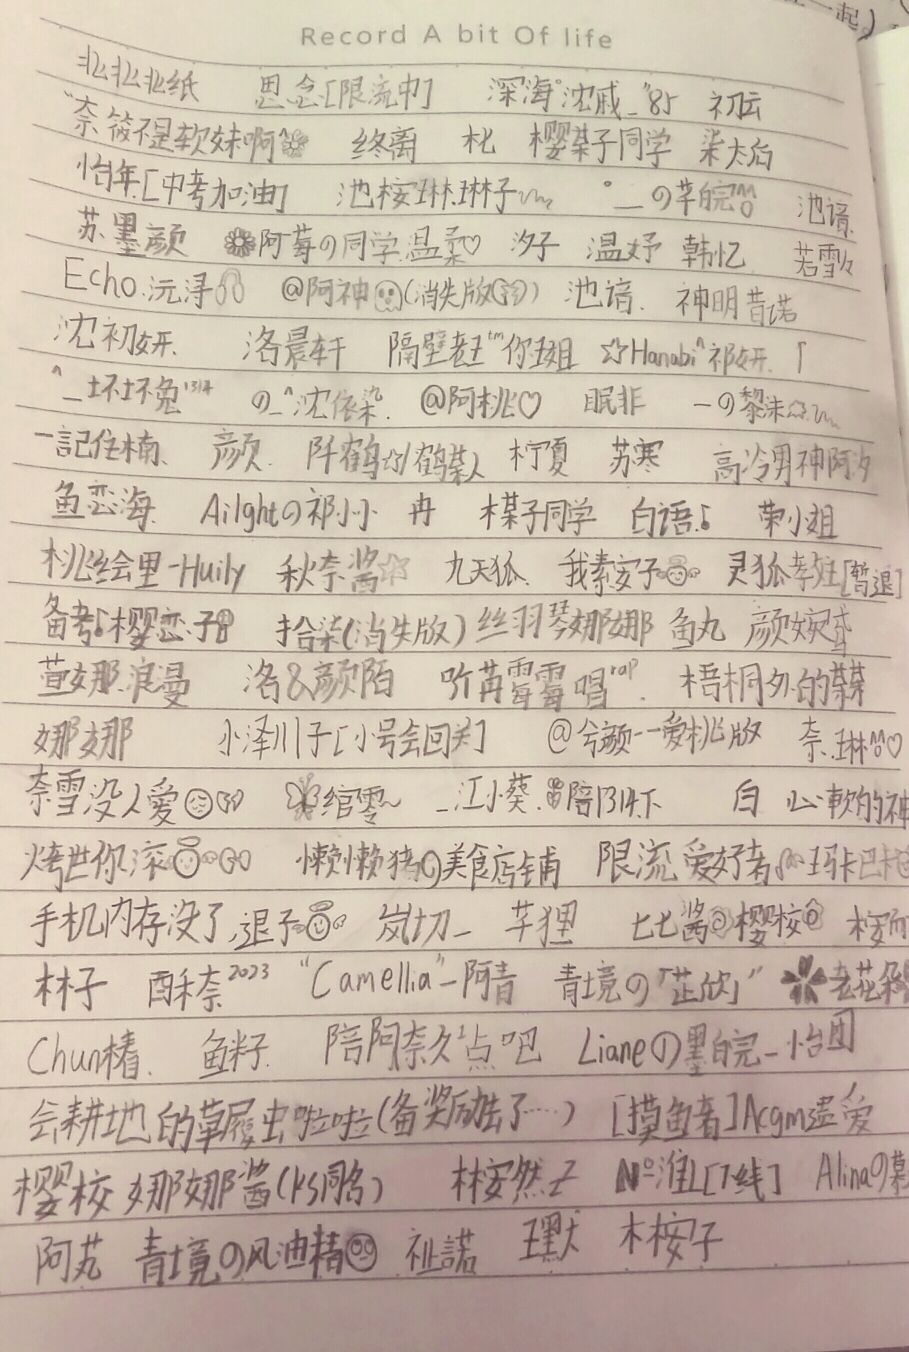 一起）
Record A bit Of life
北北北纸 思念[限流中] 深海°沈戚_"85 初云
奈筱不是软妹啊 终离 朼 樱菜子同学 柒大后
怡年.[中考加油] 池桉琳.琳子 °_の芊皖 池谙.
苏.墨颜 阿莓の同学.温柔♡ 汐子 温妤 韩忆 若雪
Echo.沅浔 @阿神(消失版) 池谙. 神明昔诺
沈初妍. 洛晨轩 隔壁老王™你王姐 ☆Hanabi^祁妍.「
^_坏坏兔1314 の_^沈依染. @阿桃♡ 眠非 一の黎洙
一記住楠、 颜. 阡鹤 柠夏 苏寒 高冷男神阿汐
鱼恋海. Ailghtの祁小小 冉 楳子同学 白语.♪ 荣小姐
桃绘里-Huily 秋奈酱☆ 九天狐. 我素安子 灵狐 [暂退]
备考♪樱恋.子 拾柒(消失版) 丝羽琴娜娜 鱼丸 颜婉
萱娜.浪漫 洛&颜陌 听苒霉霉唱rap. 梧桐外的
娜娜 小泽川子[小号会回关] @兮颜一一爱桃版 奈.琳♡
奈雪没人爱 绾零～ _江小葵.陪1314下 白 心軟的神
烤世你.滚 懒懒猪の美食店铺 限流爱好者 玛卡巴
手机内存没了,退子 岚切_ 芊狸 七七酱樱桉
林子 酥奈2023 "Camellia"-阿青 青境の「芷欣」" 老花
Chun椿. 鱼籽. 陪阿奈久1点吧 Lianeの墨皖_怡团
会耕地的草履虫啦啦(备奖励去了……) [摸鱼者]Acgm遗爱
樱桉 娜娜酱(ks同名) 林安然 Nº淮[下线] Alinaの慕
阿芃 青境の风油精 祉諾 王默 木桉子